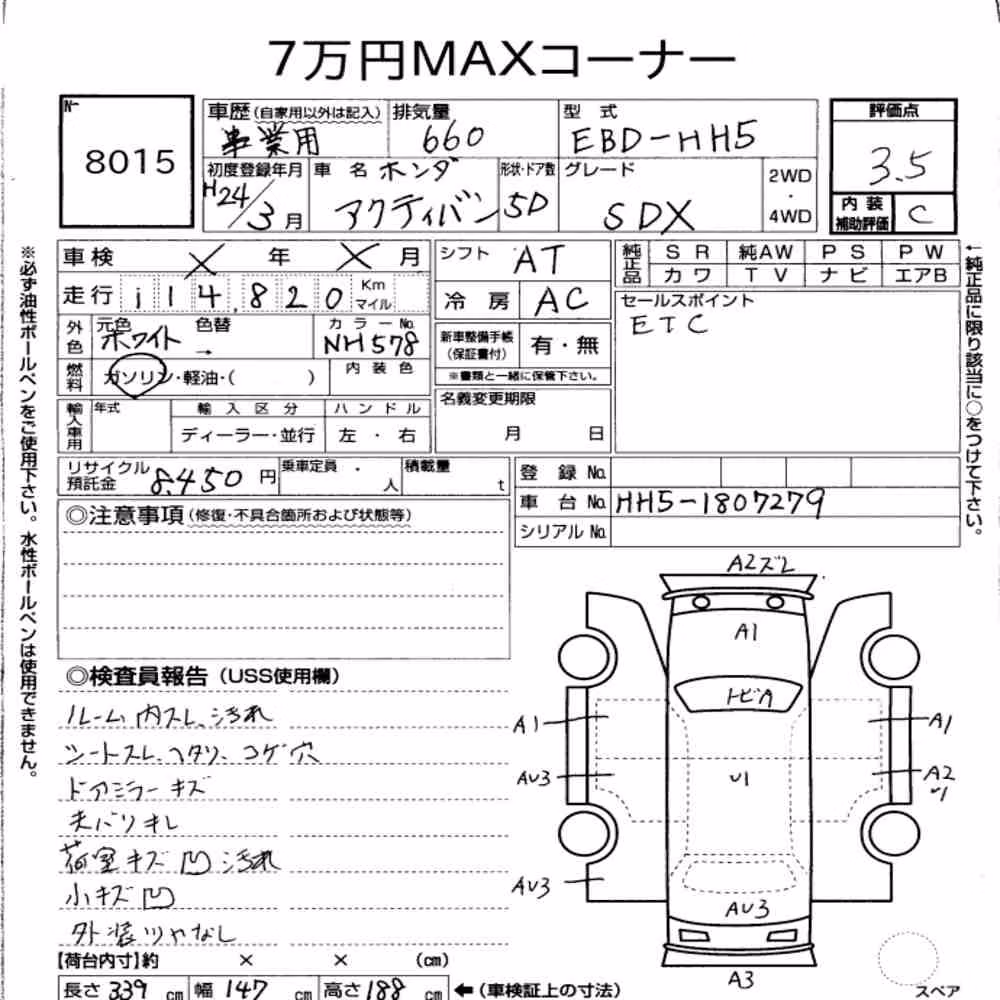 7万円MAXコーナー
No. 8015
車歴(自家用以外は記入) 事業用
排気量 660
型式 EBD-HH5
評価点 3.5
初度登録年月 H24/3月
車名 ホンダ アクティバン
形状・ドア数 5D
グレード SDX
2WD・4WD
内装補助評価 C
車検 X年 X月
シフト AT
純正品 SR 純AW PS PW
カワ TV ナビ エアB
走行 114,820 Km マイル
冷房 AC
セールスポイント
ETC
外色 元色 ホワイト 色替 → カラーNo. NH578
新車整備手帳(保証書付) 有・無
※書類と一緒に保管下さい。
燃料 ガソリン・軽油・( ) 内装色
名義変更期限 月 日
輸入車用 年式 輸入区分 ハンドル
ディーラー・並行 左・右
リサイクル預託金 8,450円
乗車定員 ・ 人
積載量 t
登録No.
車台No. HH5-1807279
シリアルNo.
◎注意事項(修復・不具合箇所および状態等)
◎検査員報告(USS使用欄)
ルーム内スレ、汚れ
シートスレ、ヘタリ、コゲ穴
ドアミラーキズ
天バリキレ
荷室キズ凹汚れ
小キズ凹
外装ツヤなし
【荷台内寸】約 × × (cm)
長さ 339 cm 幅 147 cm 高さ 188 cm ←(車検証上の寸法)
※必ず油性ボールペンをご使用下さい。水性ボールペンは使用できません。
←純正品に限り該当に○をつけて下さい。
A2ズレ
A1
トビA
A1
A1
AU3
U1
A2
U1
AU3
AU3
A3
スペア